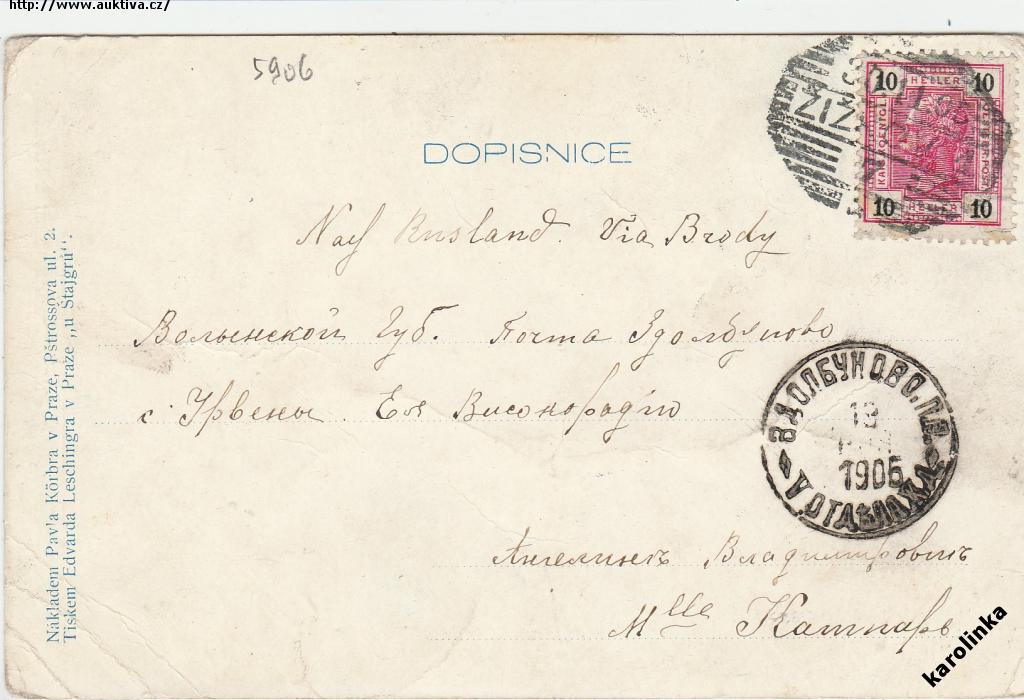 http://www.auktiva.cz/
5906
10 HELLER 10
ŽIŽ
10 HELLER 10
DOPISNICE
Nach Rusland. Via Brody
Волынской Губ. Почта Здолбуново
с. Урвены Ея Високородію
ЗДОЛБУНОВО.
1906
Ангелинѣ Владимировнѣ
Mlle
Nákladem Pav'a Körbra v Praze, Pštrossova ul. 2.
Tiskem Edvarda Leschingra v Praze „u Štajgrů".
karolinka